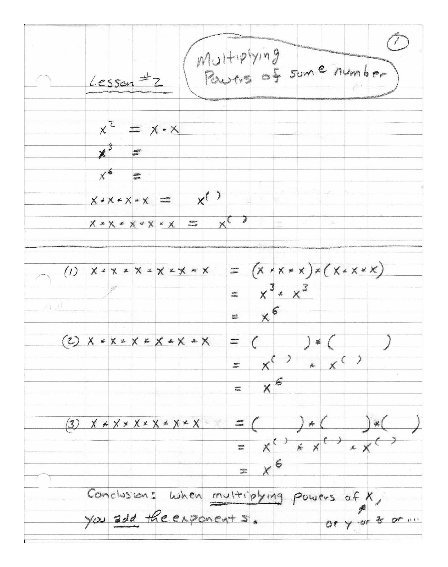 1
Multiplying
Powers of same number
Lesson #2
x² = x · x
x³ =
x⁶ =
x · x · x · x = x⁽ ⁾
x · x · x · x · x · x = x⁽ ⁾
(1) x · x · x · x · x · x = (x · x · x) · (x · x · x)
= x³ · x³
= x⁶
(2) x · x · x · x · x · x = ( ) · ( )
= x⁽ ⁾ · x⁽ ⁾
= x⁶
(3) x · x · x · x · x · x = ( ) · ( ) · ( )
= x⁽ ⁾ · x⁽ ⁾ · x⁽ ⁾
= x⁶
Conclusion: When multiplying powers of x,
you add the exponents. or y or z or ...